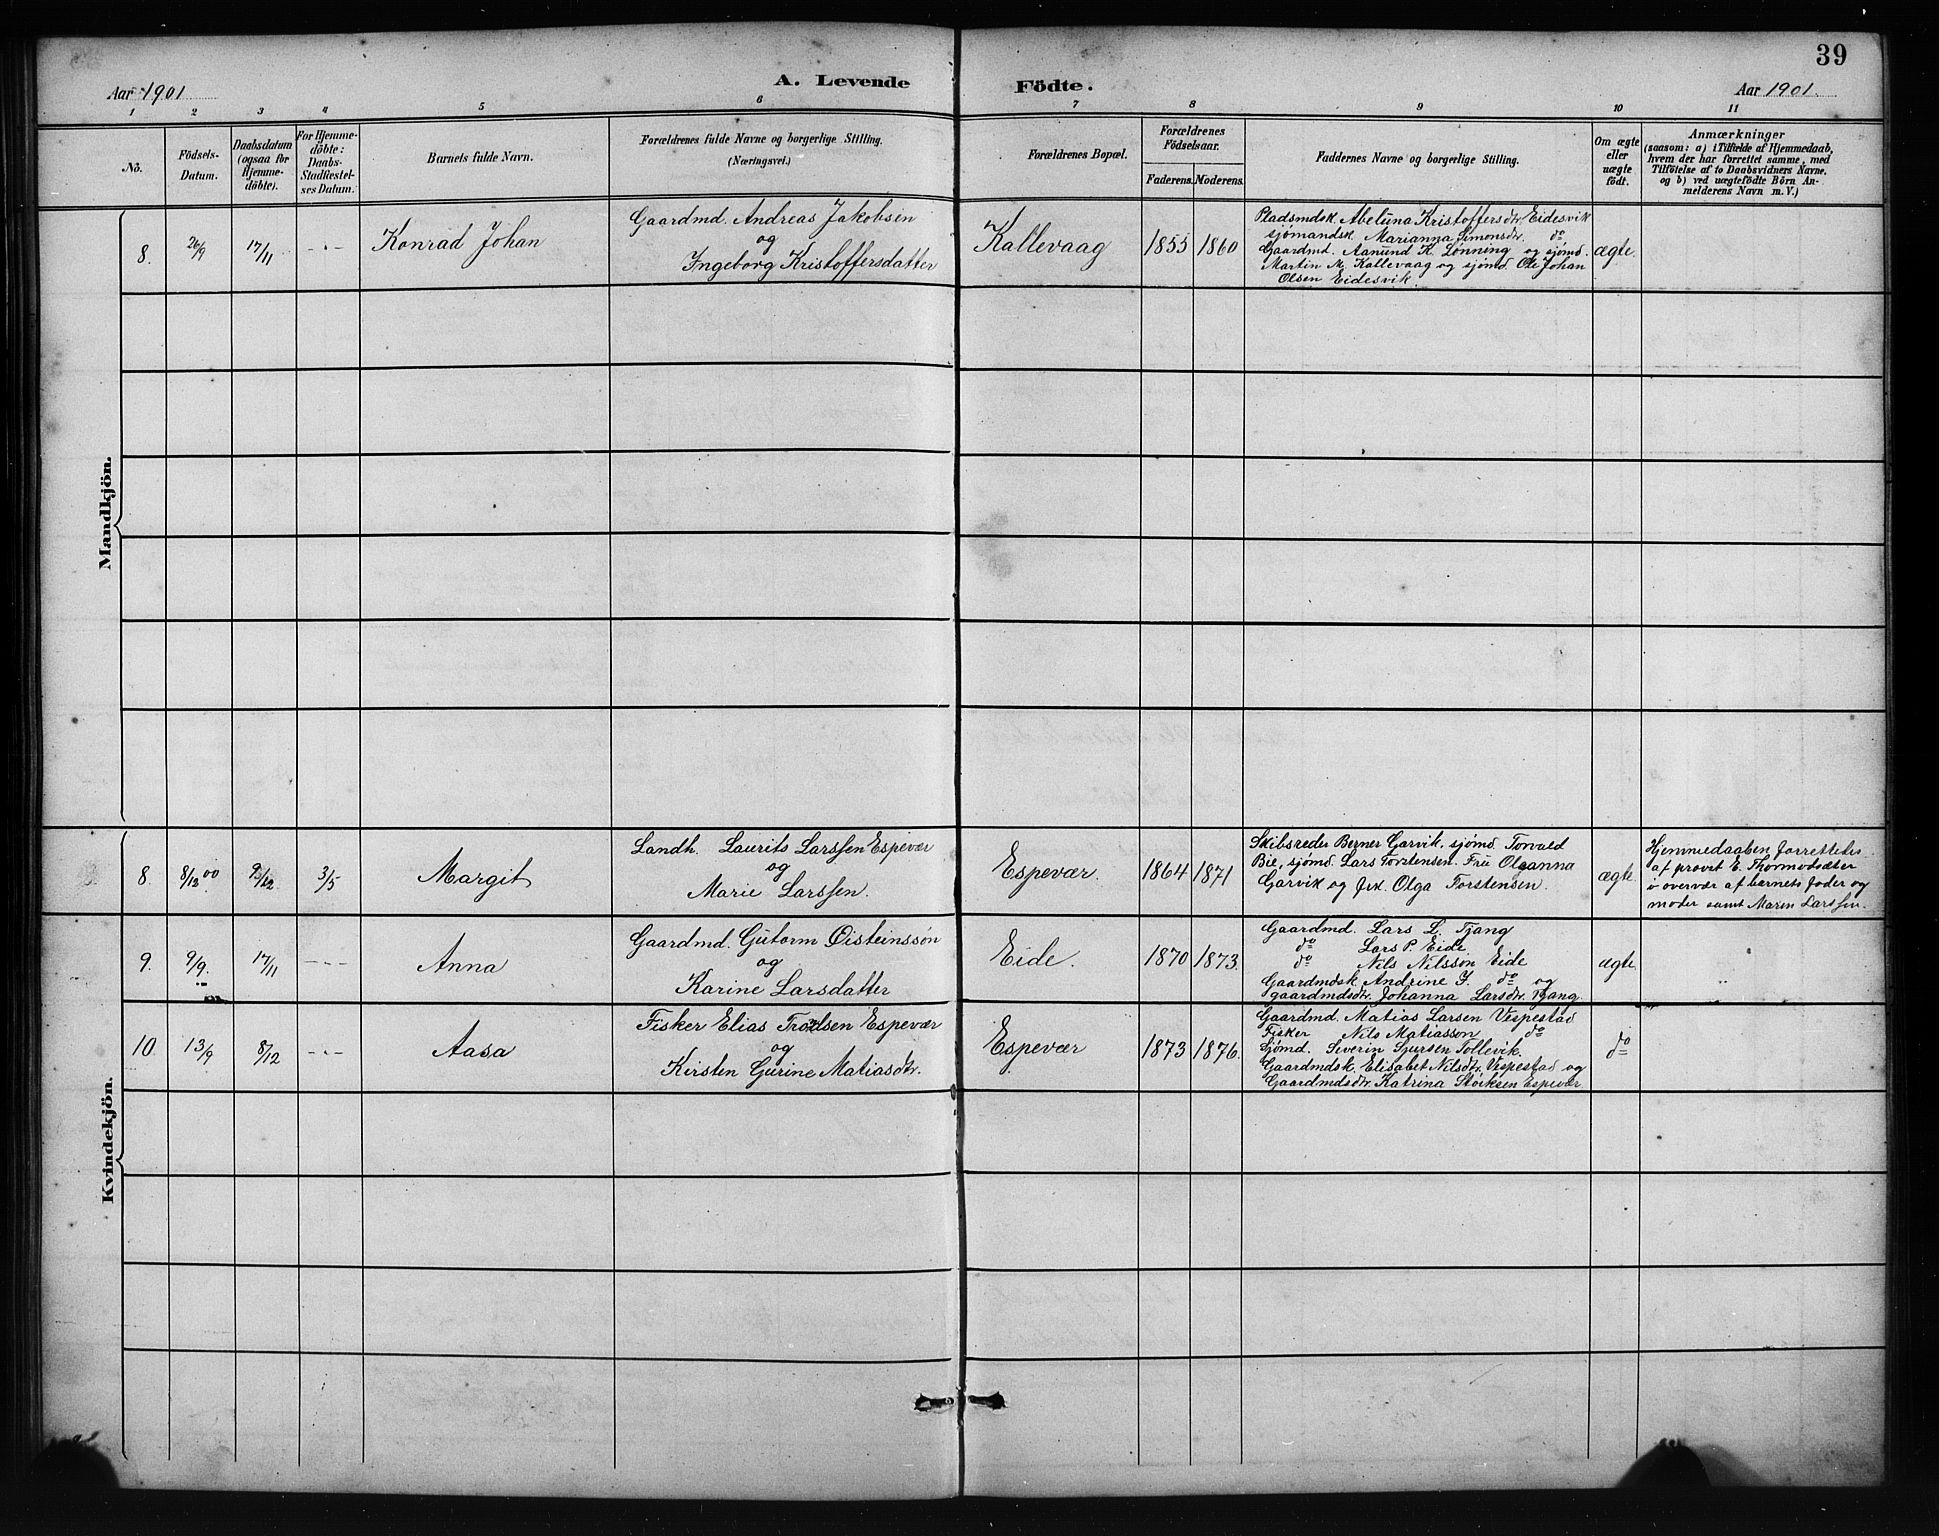 39
Aar 1901
A. Levende Födte.
Aar 1901.
1 2 3 4 5 6 7 8 9 10 11
No.
Födsels-Datum.
Daabsdatum (ogsaa for Hjemme-döbte).
For Hjemme-döbte: Daabs-Stadfestel-ses Datum.
Barnets fulde Navn.
Forældrenes fulde Navne og borgerlige Stilling.
(Næringsvei.)
Forældrenes Bopæl.
Forældrenes Födselsaar.
Faderens. Moderens.
Faddernes Navne og borgerlige Stilling.
Om ægte eller uægte födt.
Anmærkninger
(saasom: a) i Tilfælde af Hjemmedaab,
hvem der har forrettet samme, med
Tilföielse af to Daabsvidners Navne,
og b) ved uægtefödte Börn An-
melderens Navn m. V.)
Mandkjön.
8. 26/9 17/11 -"- Konrad Johan
Gaardmd. Andreas Jakobsen
og
Ingeborg Kristoffersdatter
Kallevaag 1855 1860
Pladsmdsk. Abeluna Kristoffersdtr. Eidesvik
sjömandsk. Marianna Simonsdtr. do
Gaardmd. Aanund K. Lönning og sjömd.
Martin M. Kallevaag og sjömd. Ole Johan
Olsen Eidesvik.
ægte.
Kvindekjön.
8. 8/12 00 9/12 3/5 Margit
Landh. Laurits Larssen Espevær
og
Marie Larssen.
Espevær. 1864 1871
Skibsreder Berner Garvik, sjömd. Torvald
Bie, sjömd. Lars Torstensen. Fru Olganna
Garvik og frk. Olga Torstensen.
ægte.
Hjemmedaaben forrettedes
af provst E. Thormodsæter
i overvær af barnets fader og
moder samt Maren Larssen.
9. 9/9. 17/11 --- Anna
Gaardmd. Gutorm Öisteinssön
og
Karine Larsdatter
Eide. 1870 1873.
Gaardmd. Lars L. Tjang
do Lars P. Eide
do Nils Nilsson Eide
Gaardmdsk. Andrine J. do og
gaardmdsdtr. Johanna Larsdtr. Tjang.
ægte.
"
10. 13/9 8/12 -"- Aasa
Fisker Elias Troedsen Espevær
og
Kirsten Gurine Matiasdtr.
Espevær 1873 1876.
Gaardmd. Matias Larsen Vespestad
Fisker Nils Matiasson do
Sjömd. Severin Sjursen Tollevik.
Gaardmdsk. Elisabet Nilsdtr. Vespestad og
Gaardmdsdtr. Katrina Störksen Espevær
do